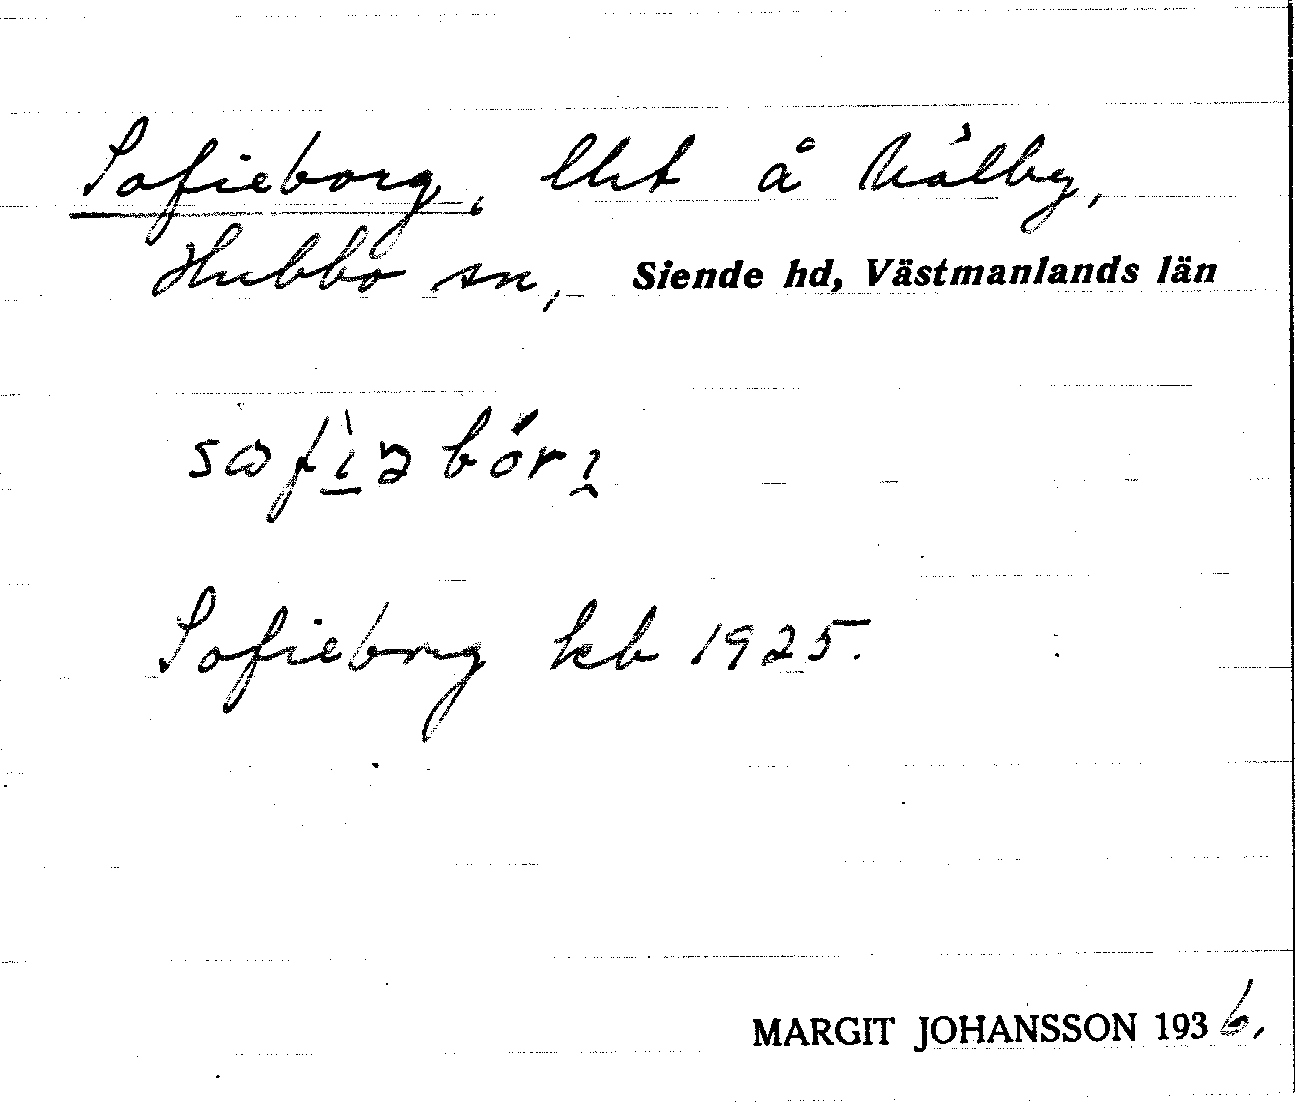 Sofieborg, lht å Målby,
Hubbo sn, Siende hd, Västmanlands län
Sofieborg kb 1925.
MARGIT JOHANSSON 1936.